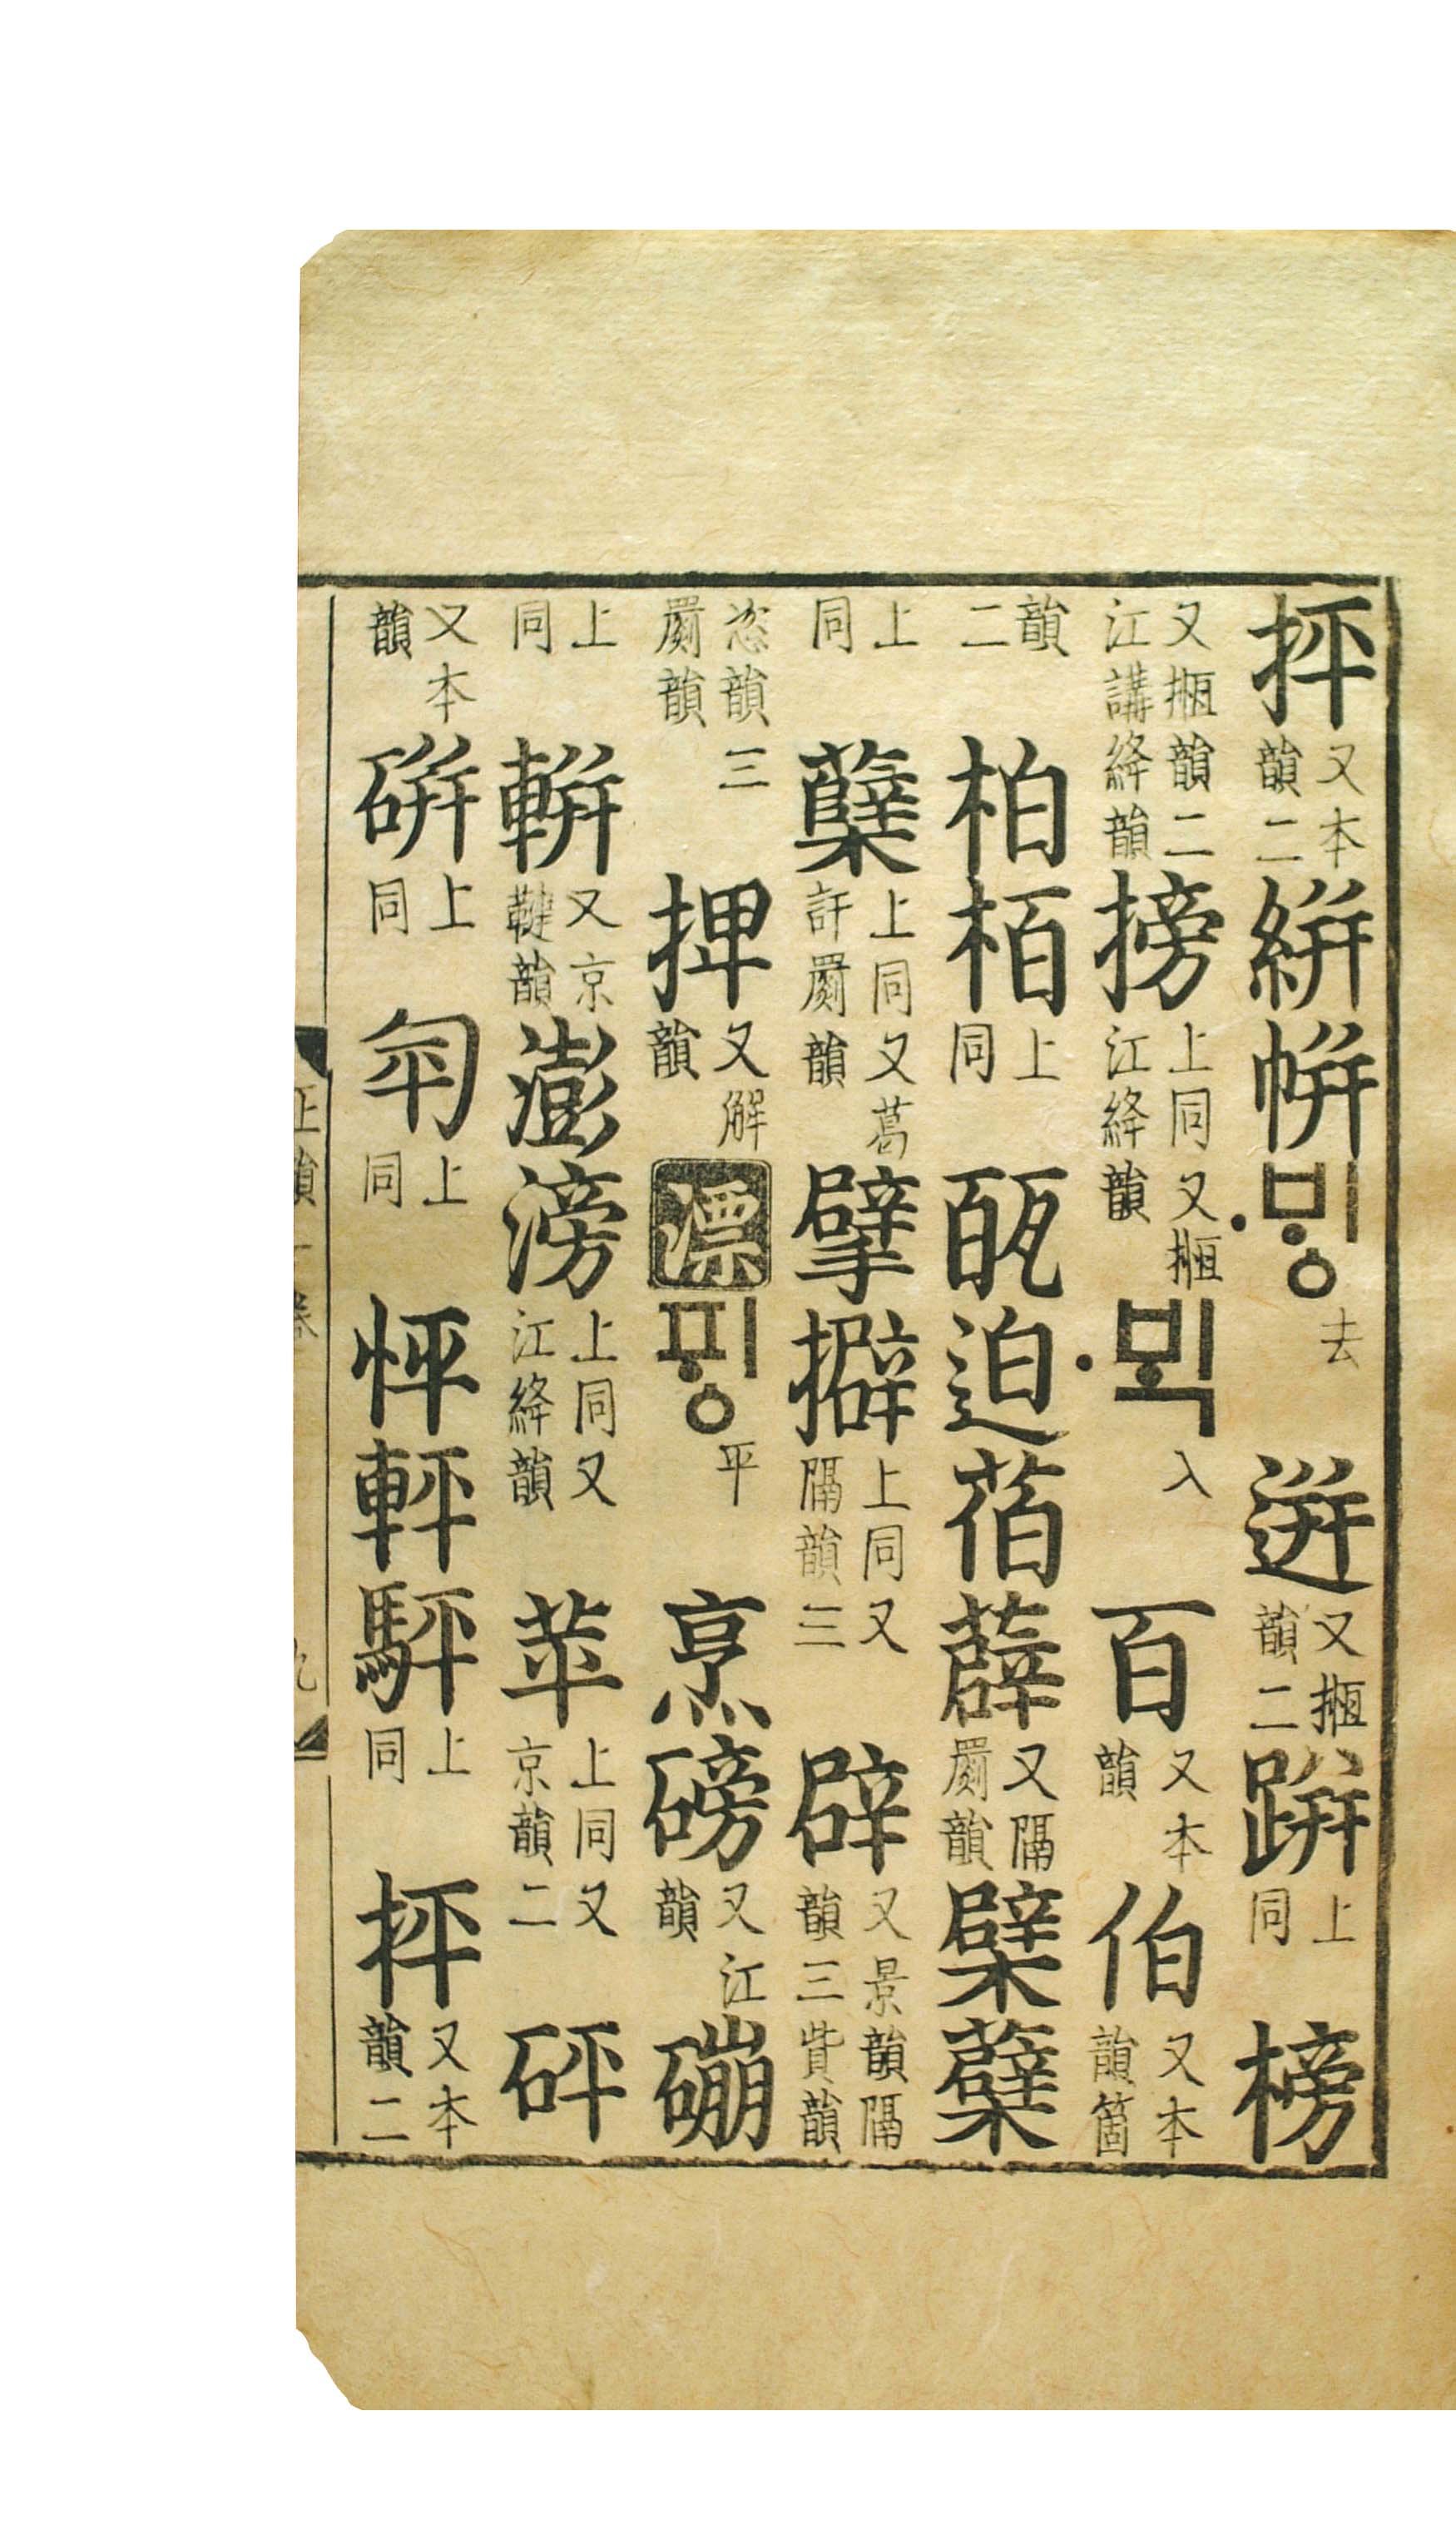 抨又本韻二絣帡ᄇᆡᇰ去迸又搄韻二跰上同榜
又搄韻二江講絳韻搒上同又搄江絳韻ᄇᆡᆨ入百又本韻伯又本韻箇
韻二柏栢上同瓸迫䒤薜又隔罽韻糪蘗
上同蘖上同又葛訐罽韻擘擗上同又隔韻三辟又景韻隔韻三貲韻
恣韻三罽韻捭又解韻漂ᄑᆡᇰ平烹磅又江韻磞
上同軿又京鞬韻澎滂上同又江絳韻苹上同又京韻二砰
又本韻硑上同匉上同怦軯駍上同抨又本韻二